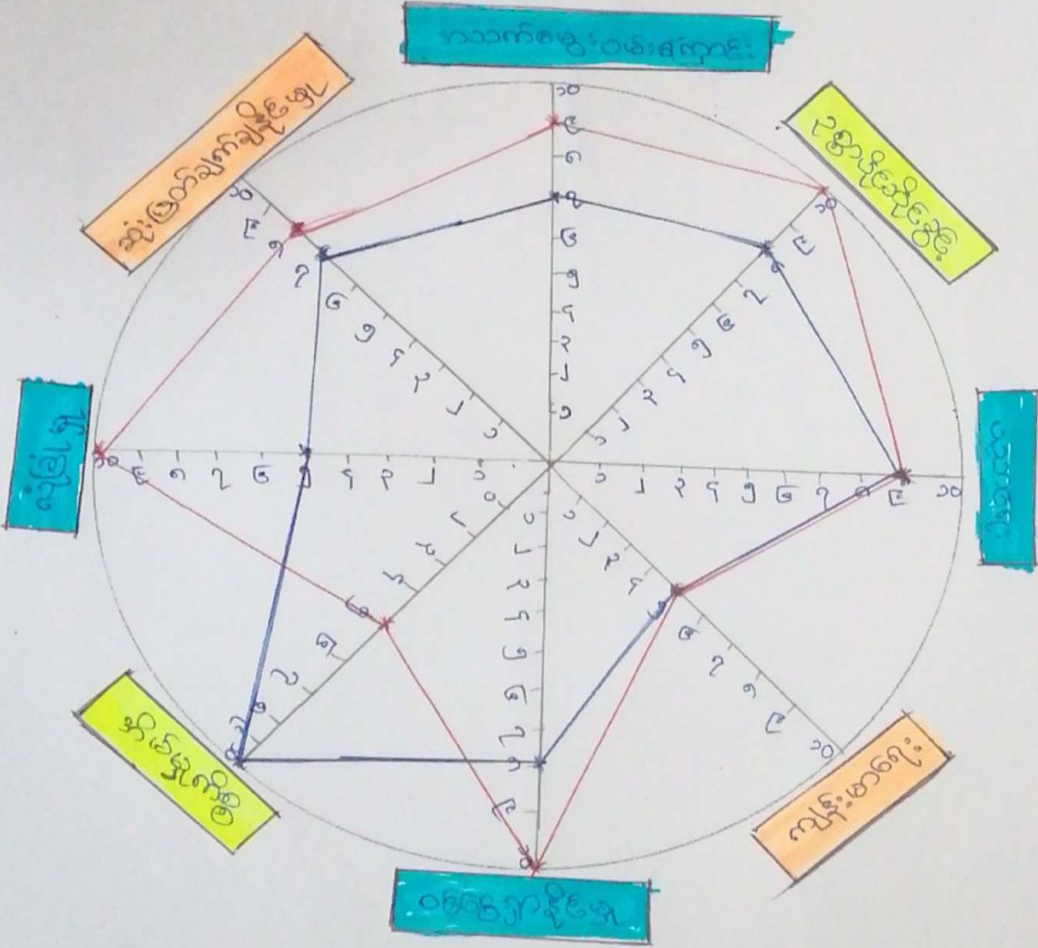 အသက်မွေးဝမ်းကျောင်း
ဥစ္စာပိုင်ဆိုင်ခွင့်
ပညာရေး
ကျန်းမာရေး
ဝင်ငွေရှာနိုင်မှု
အိမ်မှုကိစ္စ
လုံခြုံမှု
ဆုံးဖြတ်ချက်ချနိုင်မှု
၁ ၂ ၃ ၄ ၅ ၆ ၇ ၈ ၉ ၁၀
၁ ၂ ၃ ၄ ၅ ၆ ၇ ၈ ၉ ၁၀
၁ ၂ ၃ ၄ ၅ ၆ ၇ ၈ ၉ ၁၀
၁ ၂ ၃ ၄ ၅ ၆ ၇ ၈ ၉ ၁၀
၁ ၂ ၃ ၄ ၅ ၆ ၇ ၈ ၉ ၁၀
၁ ၂ ၃ ၄ ၅ ၆ ၇ ၈ ၉ ၁၀
၁ ၂ ၃ ၄ ၅ ၆ ၇ ၈ ၉ ၁၀
၁ ၂ ၃ ၄ ၅ ၆ ၇ ၈ ၉ ၁၀